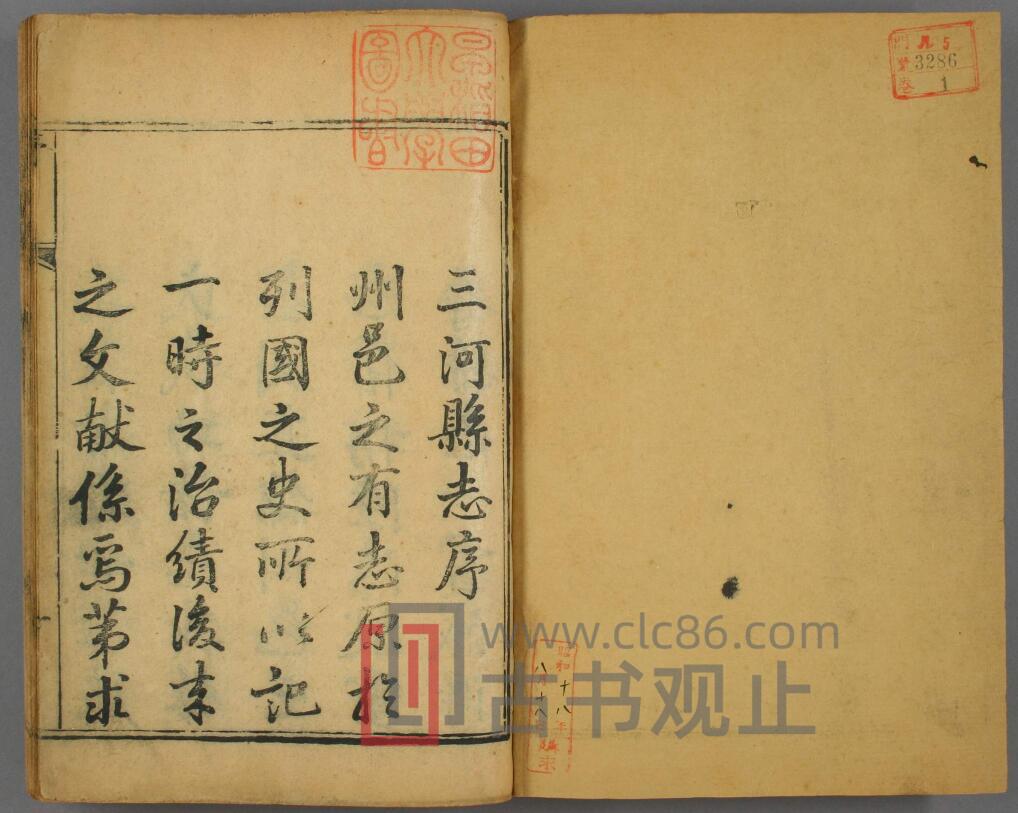 門 凡5
號 3286
卷 1
早稻田
大學
圖書
三河縣志序
州邑之有志原於
列國之史所以記
一時之治績後来
之文献係焉第求
昭和十八年
八月十八日購求
www.clc86.com
古书观止